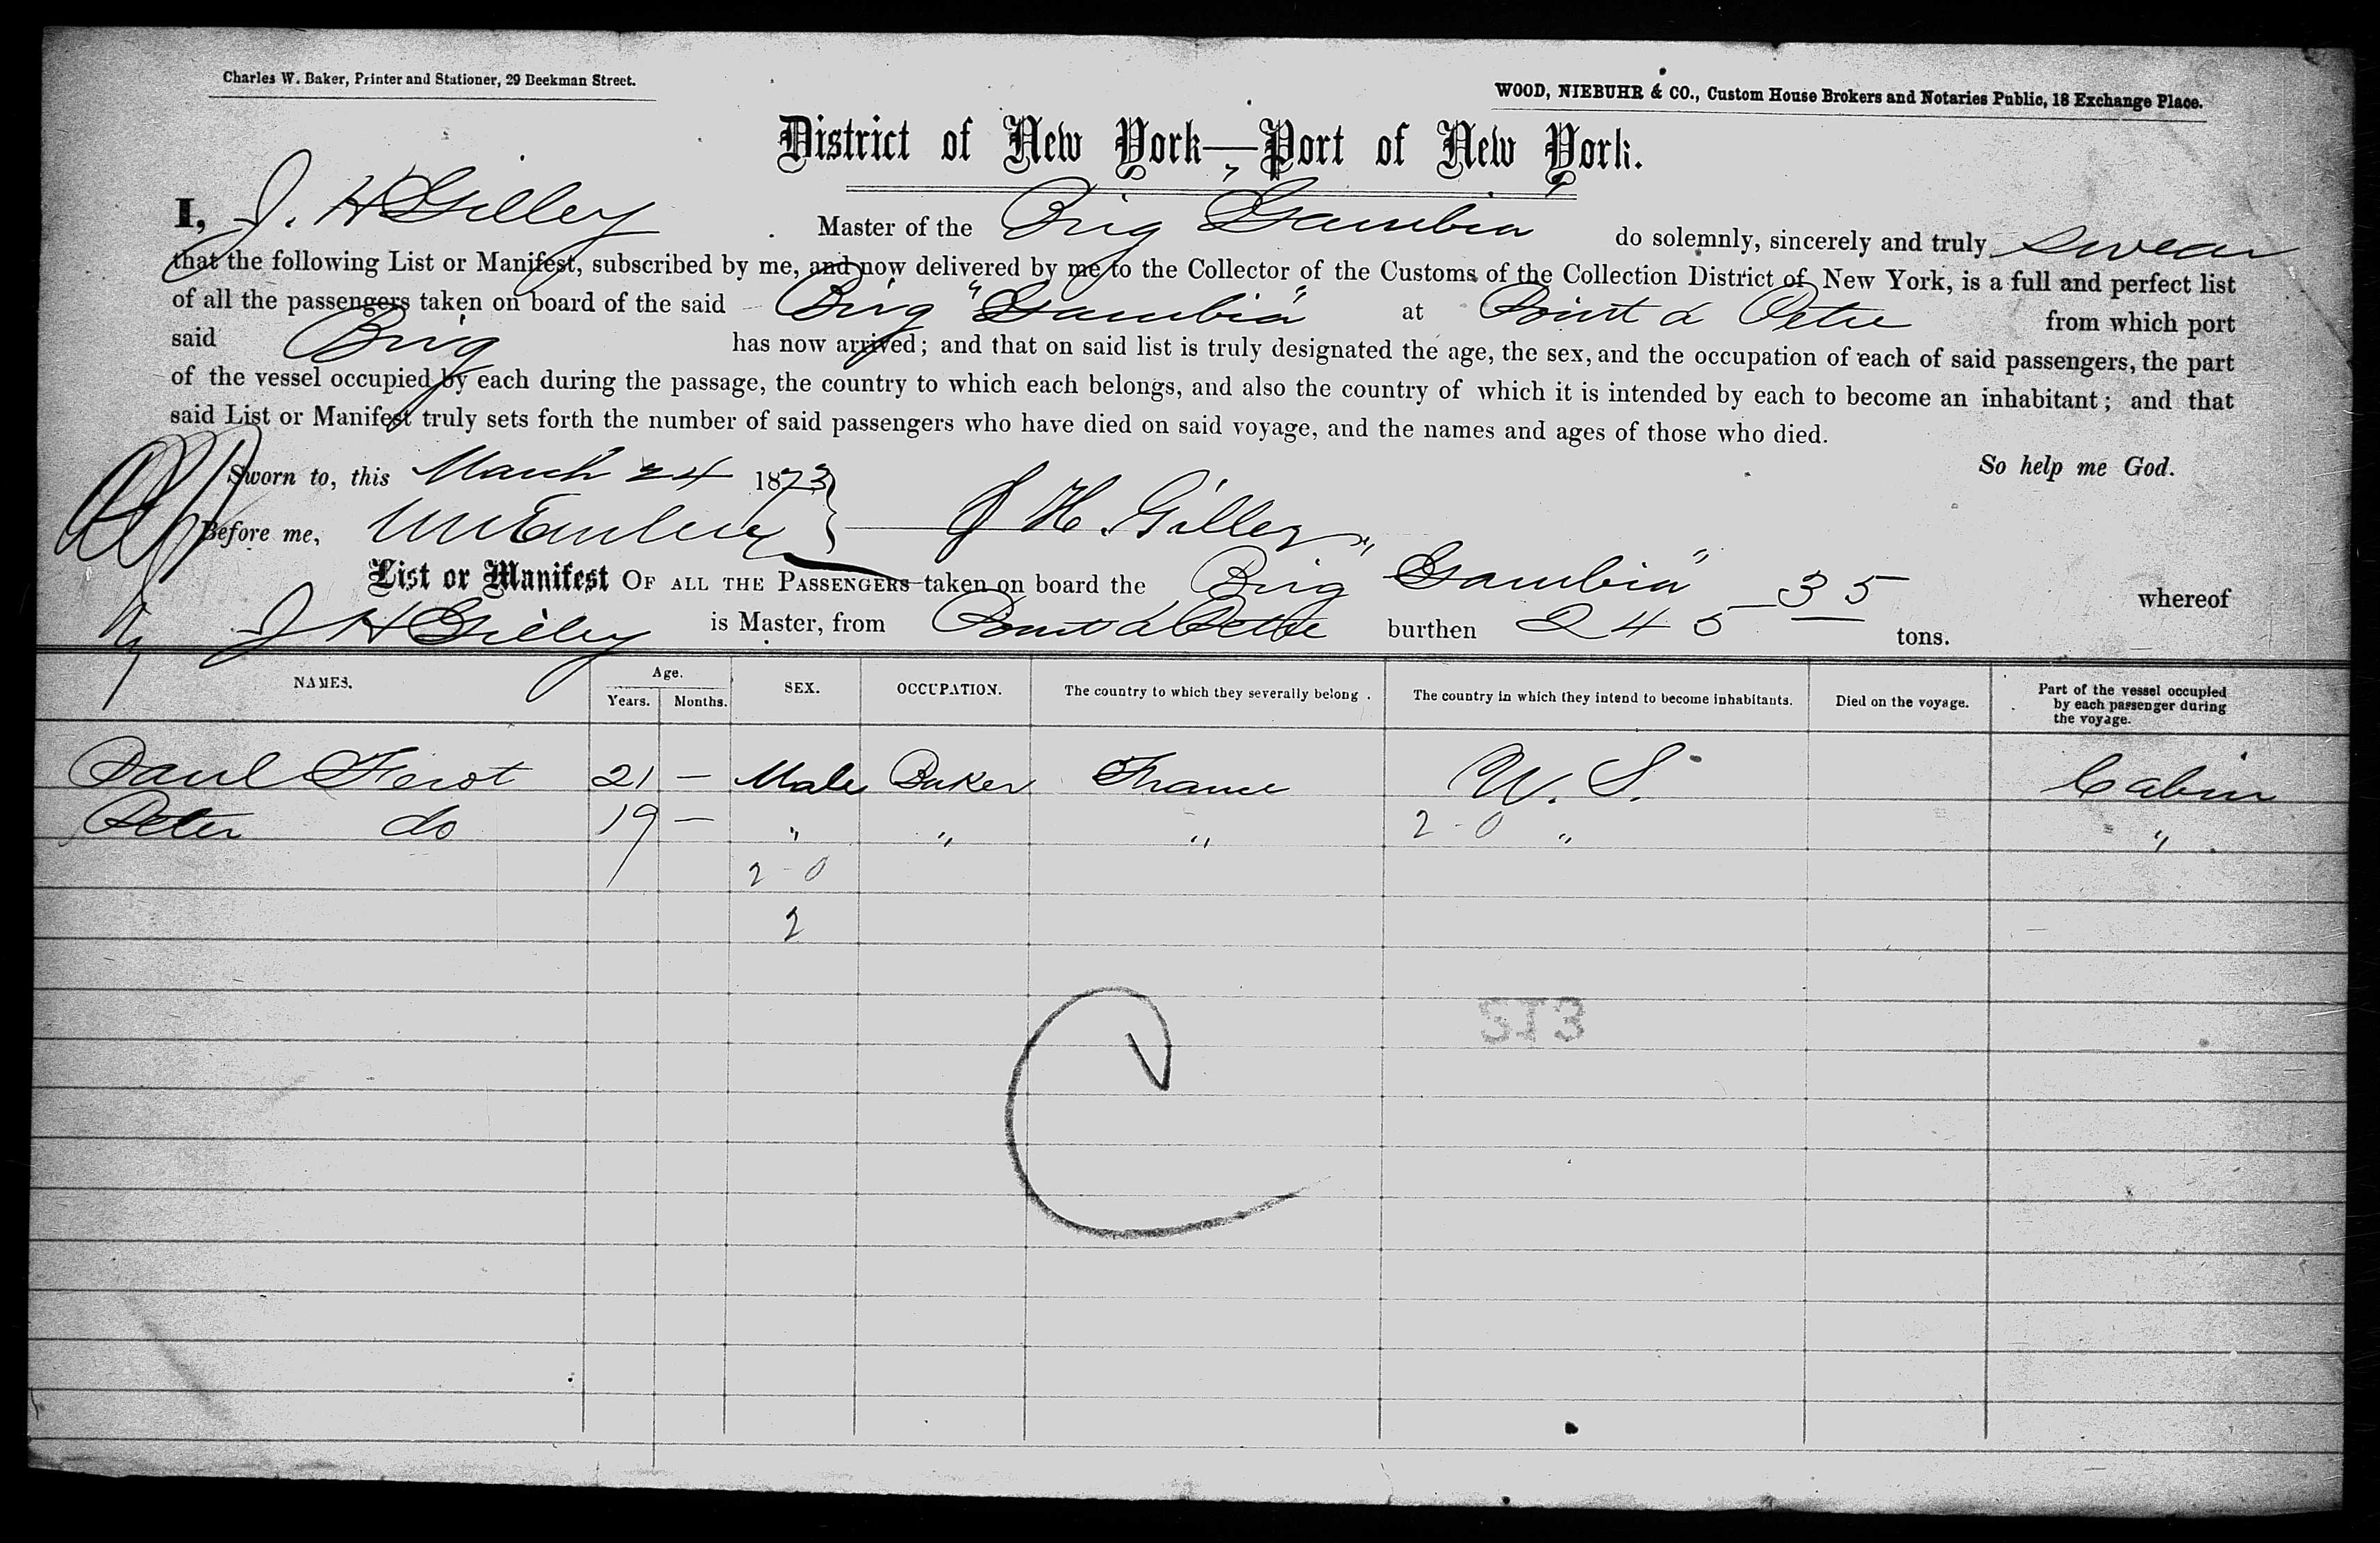 Charles W. Baker, Printer and Stationer, 29 Beekman Street.
WOOD, NIEBUHR & CO., Custom House Brokers and Notaries Public, 18 Exchange Place.
District of New York—Port of New York.
I, J. H Gilley Master of the Brig Gambia do solemnly, sincerely and truly swear
that the following List or Manifest, subscribed by me, and now delivered by me to the Collector of the Customs of the Collection District of New York, is a full and perfect list
of all the passengers taken on board of the said Brig "Gambia" at Point a Petre from which port
said Brig has now arrived; and that on said list is truly designated the age, the sex, and the occupation of each of said passengers, the part
of the vessel occupied by each during the passage, the country to which each belongs, and also the country of which it is intended by each to become an inhabitant; and that
said List or Manifest truly sets forth the number of said passengers who have died on said voyage, and the names and ages of those who died.
So help me God.
Sworn to, this March 24 1873
Before me, J H. Gilley
List or Manifest OF ALL THE PASSENGERS taken on board the Brig "Gambia" whereof
J H Gilley is Master, from Point a Petre burthen 245 35 tons.
NAMES. Age. Years. Months. SEX. OCCUPATION. The country to which they severally belong. The country in which they intend to become inhabitants. Died on the voyage. Part of the vessel occupied by each passenger during the voyage.
Paul 21 — Male Baker France U. S. Cabin
Peter do 19 — " " " 2-0 " "
2-0
2